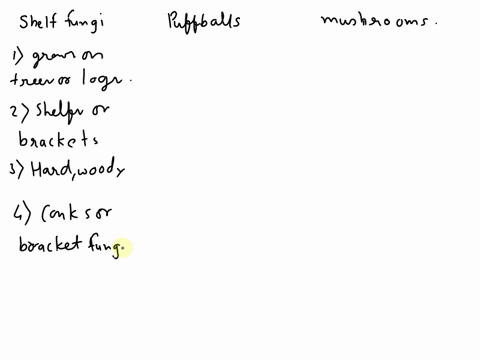 Shelf fungi Puffballs mushrooms.
1) grow on
trees or logs.
2) Shelfs or
brackets
3) Hard, woody
4) Conks or
bracket fung.